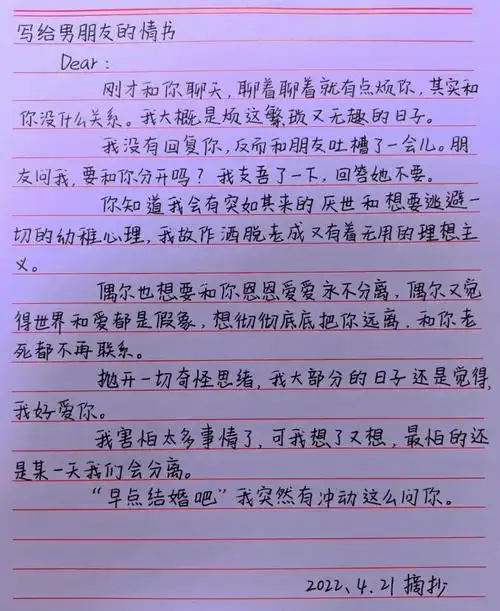 写给男朋友的情书
Dear:
刚才和你聊天，聊着聊着就有点烦你，其实和
你没什么关系。我大概是烦这繁琐又无趣的日子。
我没有回复你，反而和朋友吐槽了一会儿。朋
友问我，要和你分开吗？我支吾了一下，回答她不要。
你知道我会有突如其来的厌世和想要逃避一
切的幼稚心理，我故作洒脱老成又有着无用的理想主
义。
偶尔也想要和你恩恩爱爱永不分离，偶尔又觉
得世界和爱都是假象，想彻彻底底把你远离，和你老
死都不再联系。
抛开一切奇怪思绪，我大部分的日子还是觉得，
我好爱你。
我害怕太多事情了，可我想了又想，最怕的还
是某一天我们会分离。
“早点结婚吧”我突然有冲动这么问你。
2022、4.21摘抄